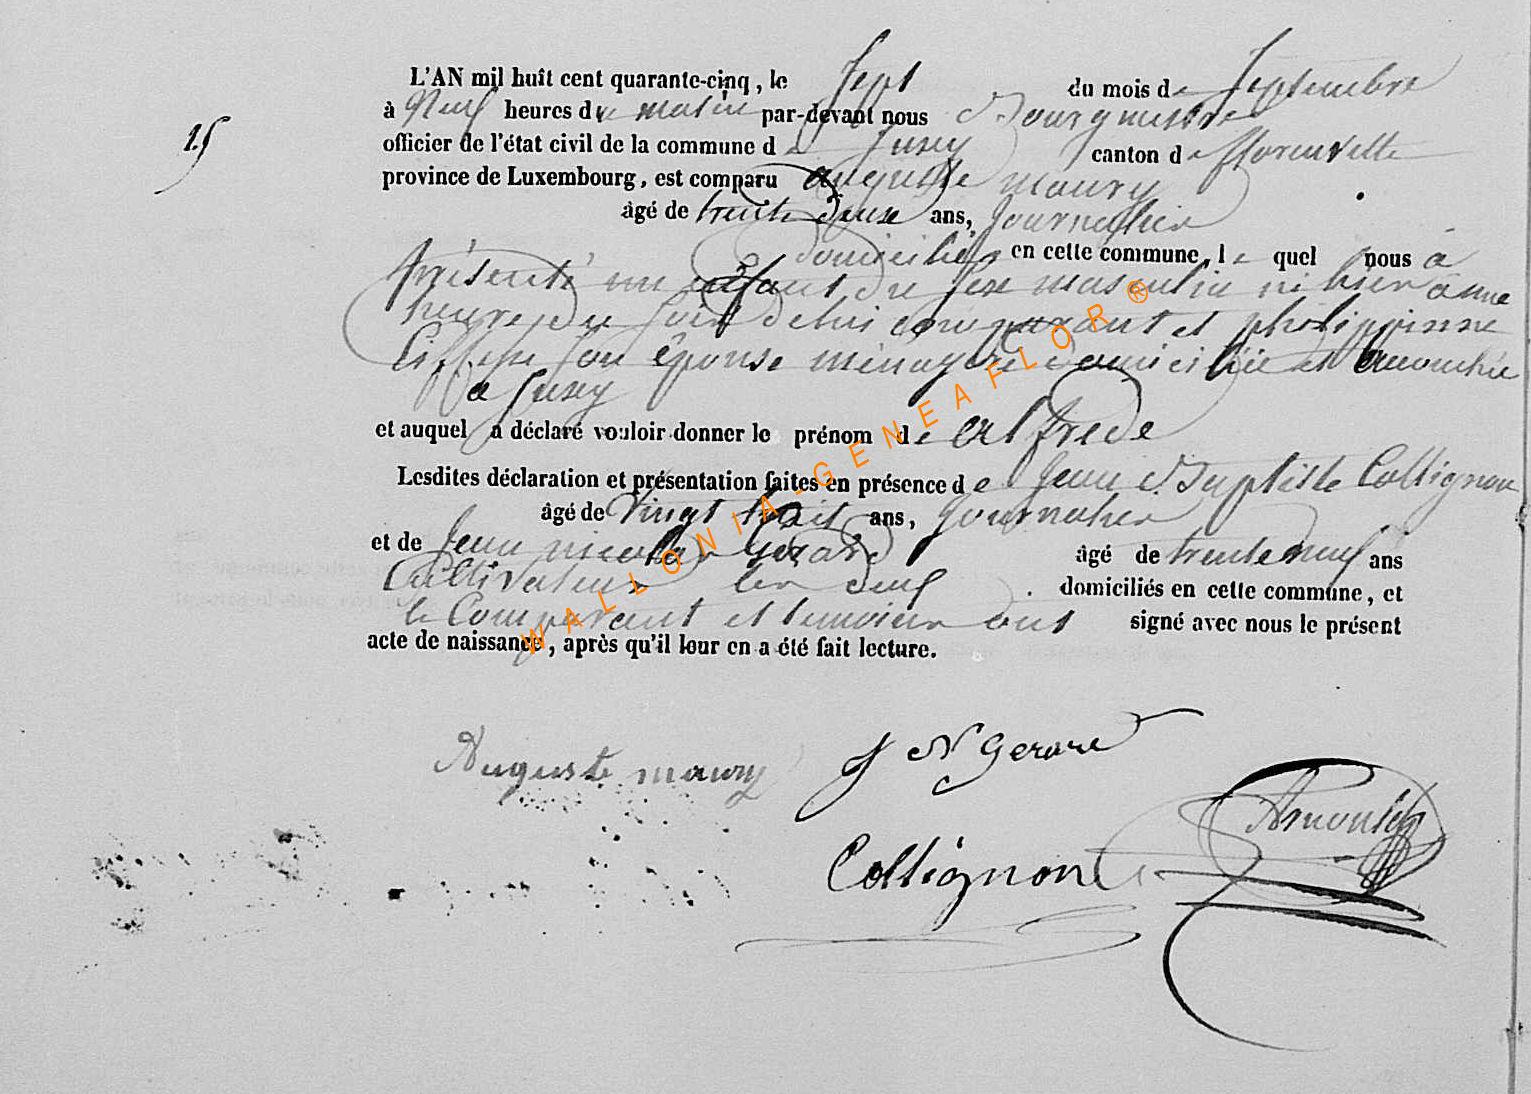 L'AN mil huit cent quarante-cinq, le Sept du mois de Septembre
à Neuf heures du matin par-devant nous Bourgmestre
15
officier de l'état civil de la commune de Jusey canton de florenville
province de Luxembourg, est comparu auguste maury
âgé de trente deux ans, Journalier
domicilié en cette commune, le quel nous à
présenté un enfant du sexe masculin né hier à une
heure du soir de lui comparant et philippinne
son épouse ménagère domiciliée et accouchée
a Jusey
et auquel a déclaré vouloir donner le prénom de alfrede
Lesdites déclaration et présentation faites en présence de Jean Baptiste Collignon
âgé de Vingt huit ans, Journalier
et de Jean nicolas Gérard âgé de trente neuf ans
Cultivateur les deux domiciliés en cette commune, et
le Comparant et temoins ont signé avec nous le présent
acte de naissance, après qu'il leur en a été fait lecture.
WALLONIA-GENEAFLOR ®
Auguste maury
J N Gerard
Collignon